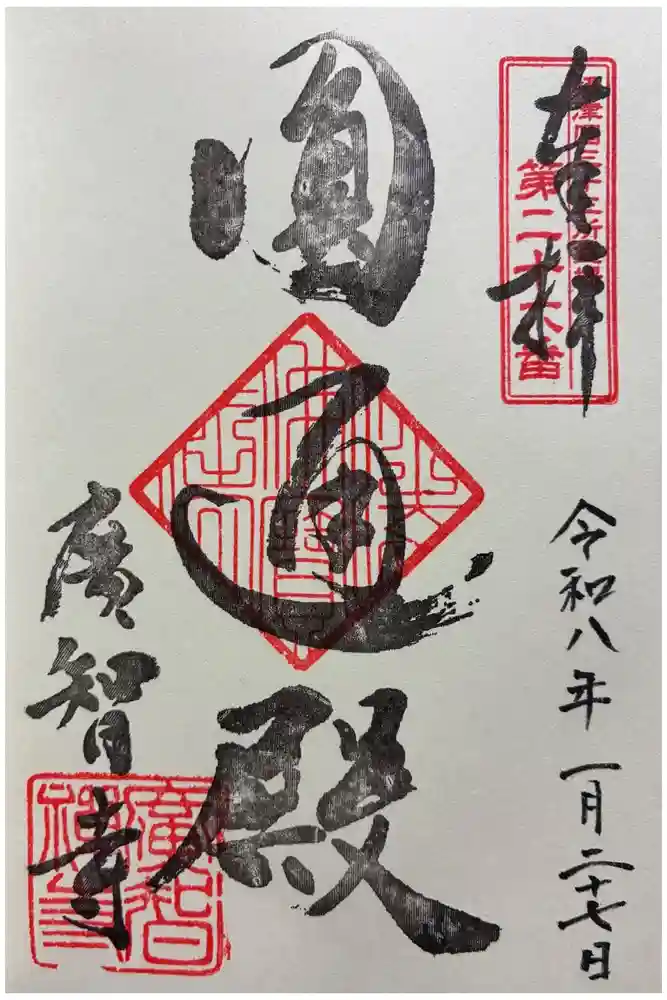 奉拝
第二十六番
令和八年 一月二十七日
圓通殿
廣智寺
廣智
禅寺